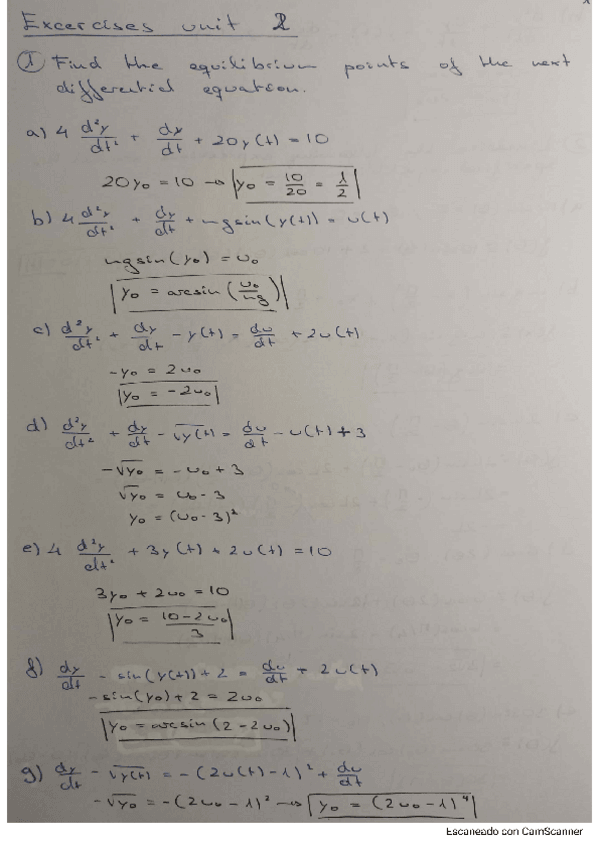 Excercises unit 2
① Find the equilibrium points of the next
differential equation.
a) 4 d²y/dt² + dy/dt + 20y(t) = 10
20y₀ = 10 → |y₀ = 10/20 = 1/2|
b) 4 d²y/dt² + dy/dt + mg sin(y(t)) = u(t)
mg sin(y₀) = u₀
|y₀ = arcsin(u₀/mg)|
c) d²y/dt² + dy/dt - y(t) = du/dt + 2u(t)
-y₀ = 2u₀
|y₀ = -2u₀|
d) d²y/dt² + dy/dt - √y(t) = du/dt - u(t) + 3
-√y₀ = -u₀ + 3
√y₀ = u₀ - 3
y₀ = (u₀ - 3)²
e) 4 d²y/dt² + 3y(t) + 2u(t) = 10
3y₀ + 2u₀ = 10
|y₀ = (10 - 2u₀)/3|
f) dy/dt - sin(y(t)) + 2 = du/dt + 2u(t)
-sin(y₀) + 2 = 2u₀
|y₀ = arcsin(2 - 2u₀)|
g) dy/dt - √y(t) = -(2u(t) - 1)² + du/dt
-√y₀ = -(2u₀ - 1)² → |y₀ = (2u₀ - 1)⁴|
Escaneado con CamScanner